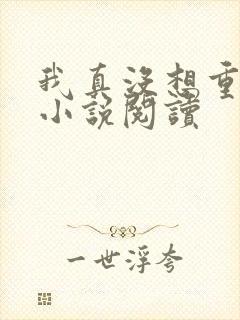 我真没想重
小説閱讀
一世浮夸